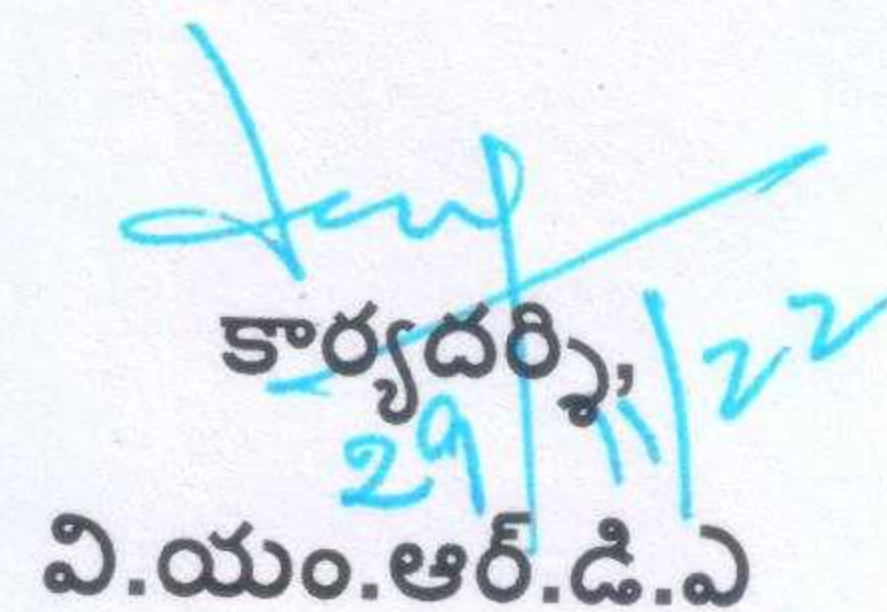 కార్యదర్శి,
29/11/22
వి.యం.ఆర్.డి.ఎ